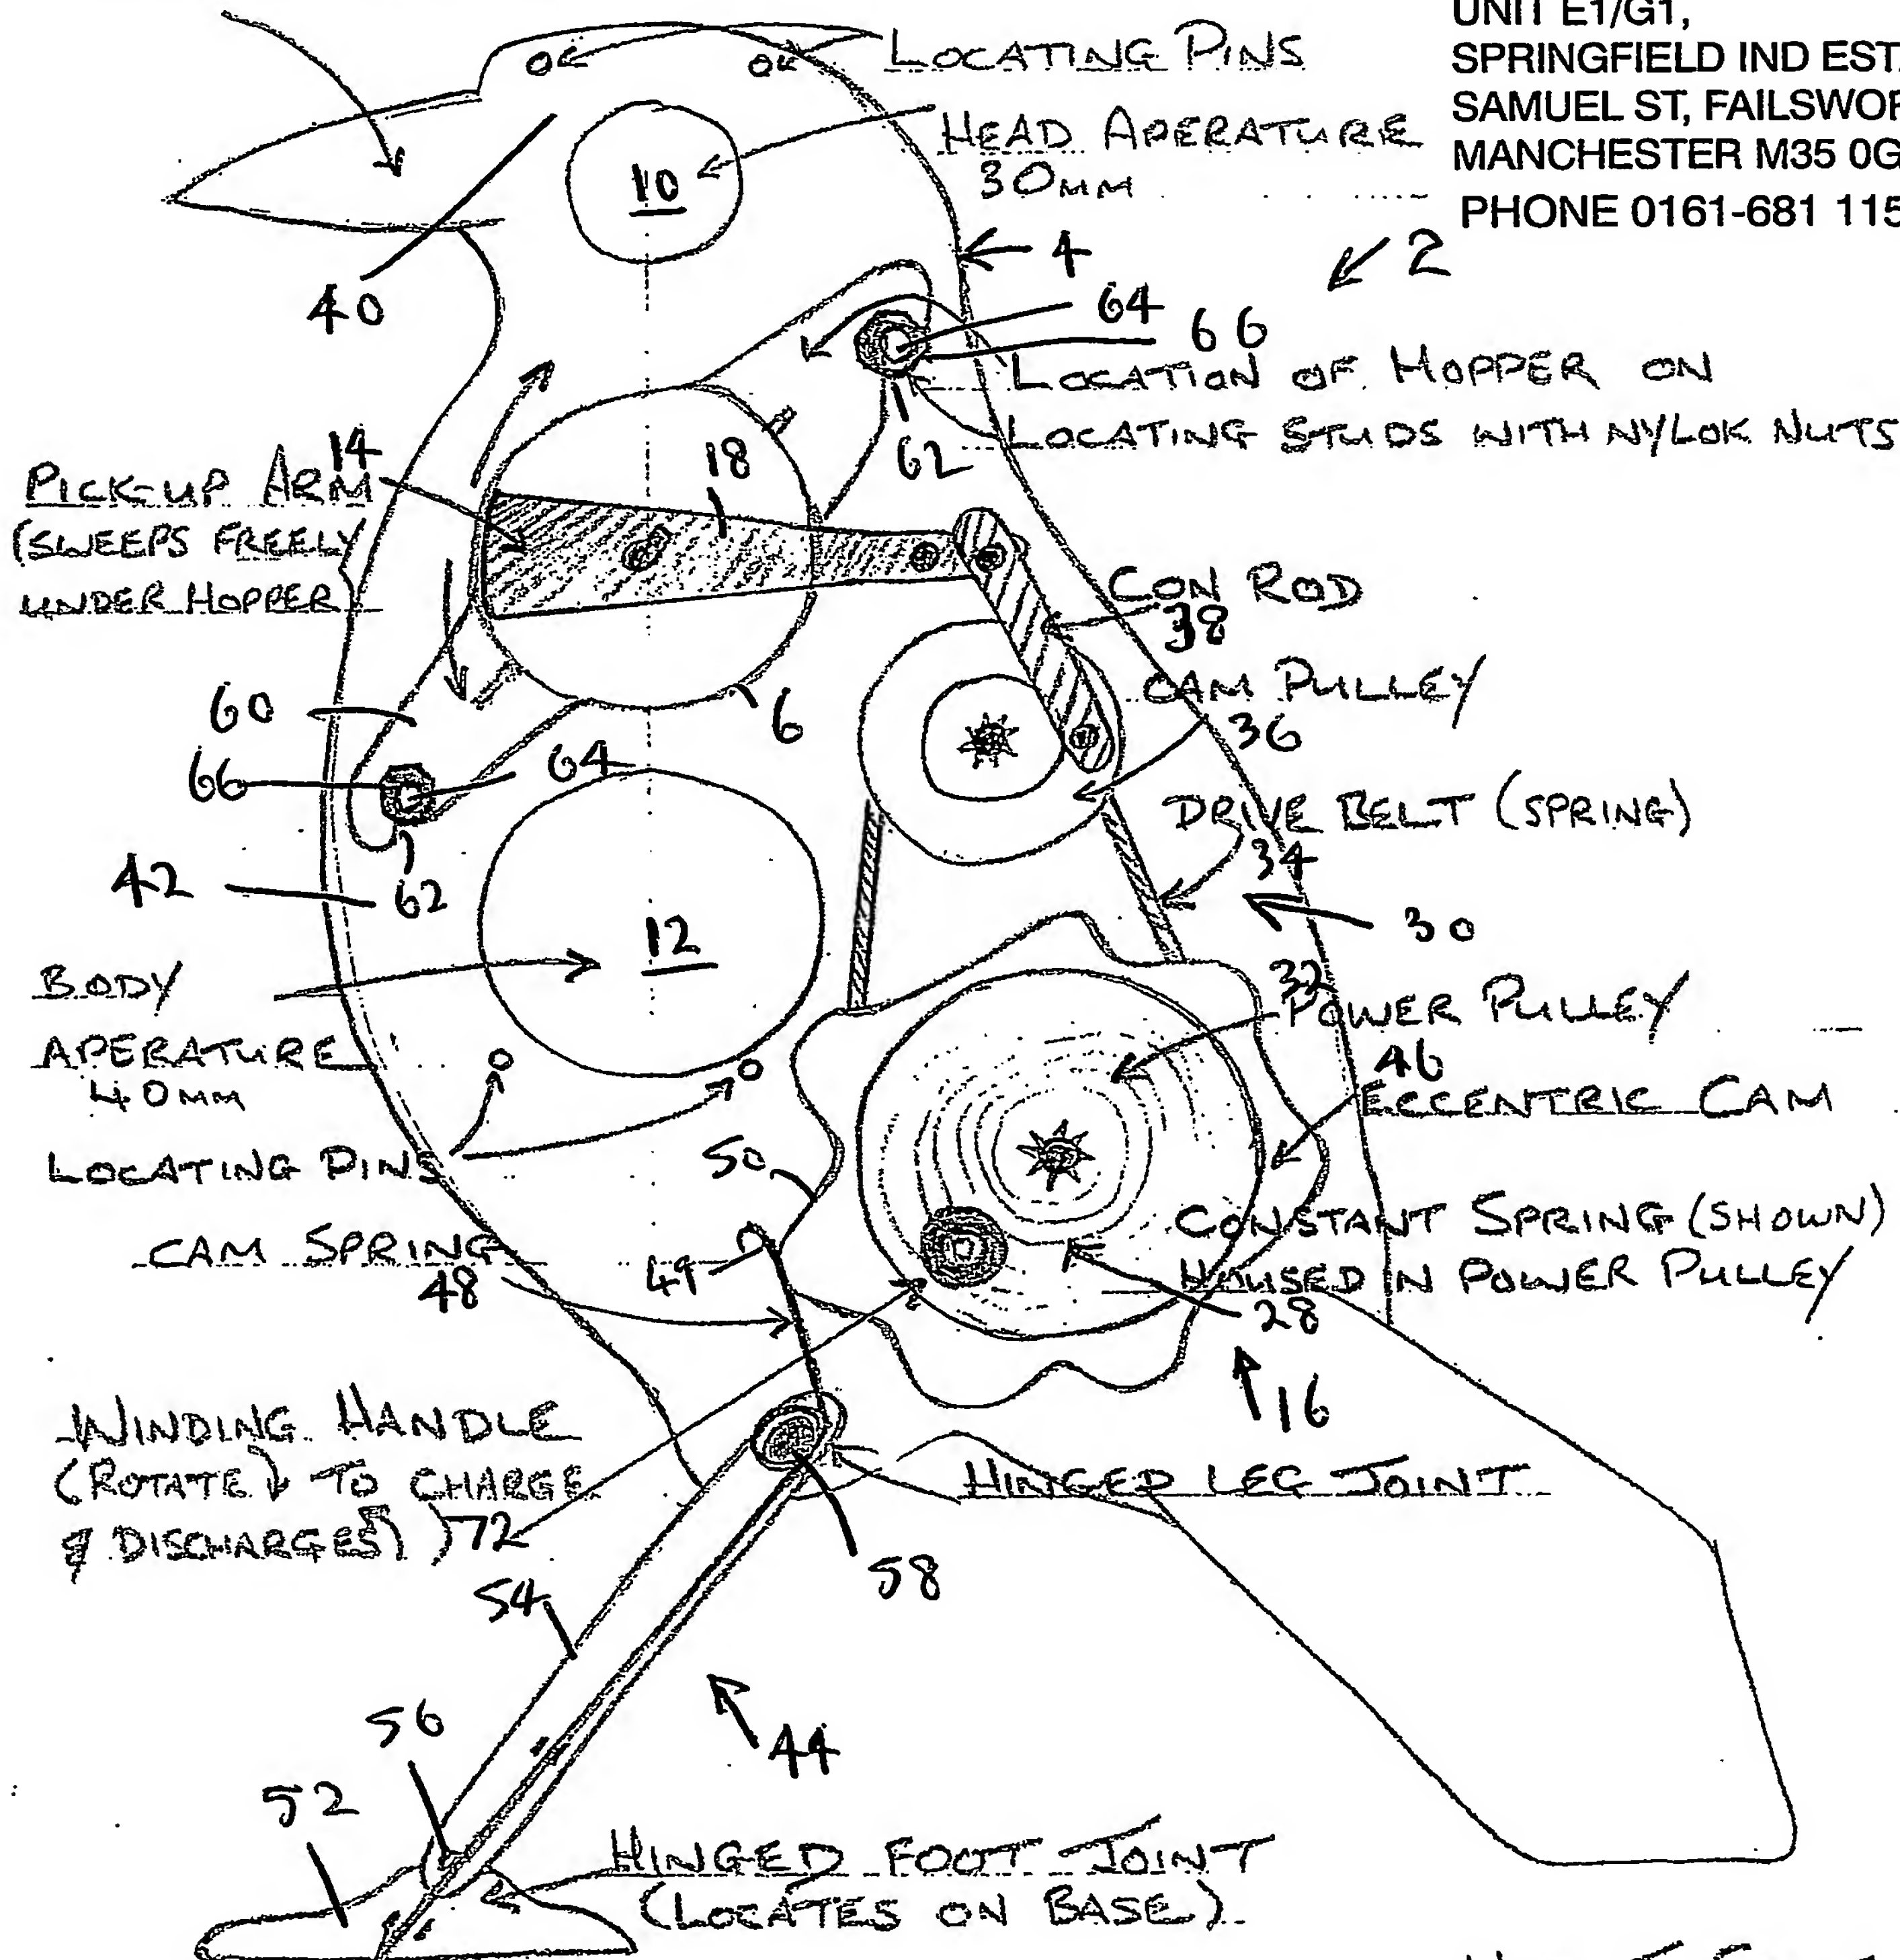 UNIT E1/G1,
SPRINGFIELD IND EST
SAMUEL ST, FAILSWOR
MANCHESTER M35 0G
PHONE 0161-681 115
LOCATING PINS
HEAD APERATURE
30MM
10
40
4
2
64
66
LOCATION OF HOPPER ON
LOCATING STUDS WITH NYLOK NUTS
62
14
PICK-UP ARM
(SWEEPS FREELY
UNDER HOPPER)
18
CON ROD
38
CAM PULLEY
36
60
6
66
64
62
DRIVE BELT (SPRING)
34
42
30
12
BODY
APERATURE
40MM
32
POWER PULLEY
46
ECCENTRIC CAM
LOCATING PINS
50
CAM SPRING
48
49
CONSTANT SPRING (SHOWN)
HOUSED IN POWER PULLEY
28
16
WINDING HANDLE
(ROTATE TO CHARGE
& DISCHARGES)
72
HINGED LEG JOINT
58
54
44
56
52
HINGED FOOT JOINT
(LOCATES ON BASE)